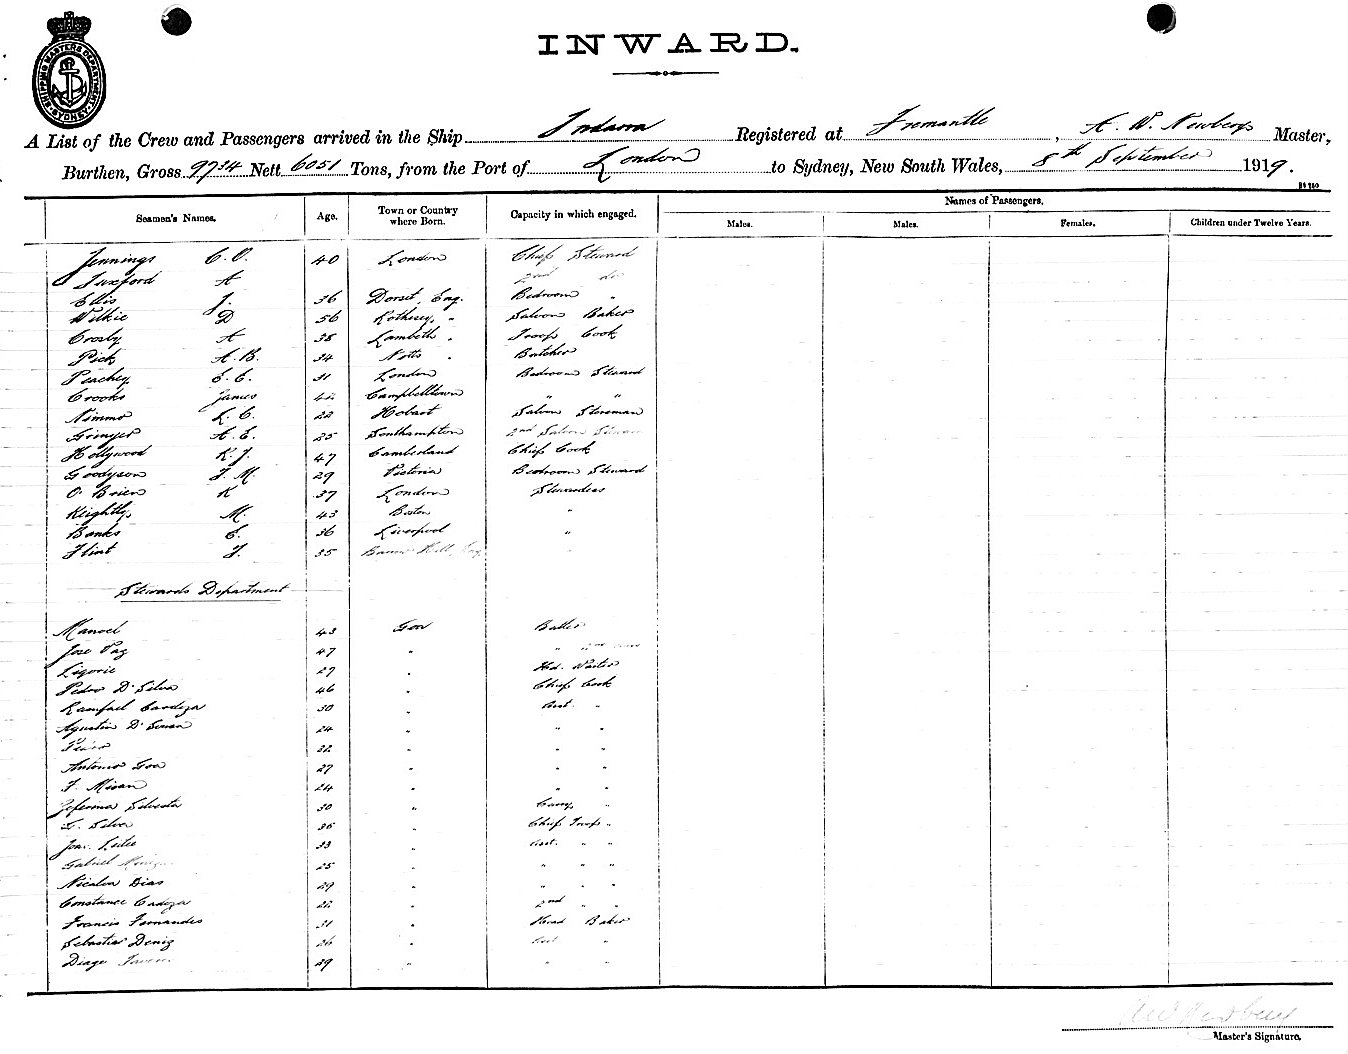 SHIPPING MASTERS DEPARTMENT SYDNEY
INWARD.
A List of the Crew and Passengers arrived in the Ship Indarra Registered at Fremantle, A. W. Newbery Master,
Burthen, Gross 9734 Nett 6051 Tons, from the Port of London to Sydney, New South Wales, 8th September 1919.
Names of Passengers.
Seamen's Names. Age. Town or Country where Born. Capacity in which engaged. Males. Males. Females. Children under Twelve Years.
Jennings C. O. 40 London Chief Steward
Tuxford A 2nd do
Ellis J. 36 Dorset, Eng. Bedroom "
Wilkie D 56 Rothesay, " Saloon Baker
Crosby A 38 Lambeth " Troop Cook
Pick A. B. 34 Notts " Butcher
Peachey E. C. 31 London Bedroom Steward
Crooks James 42 Campbelltown " "
Nimmo L. C. 22 Hobart Saloon Storeman
Grinyer A. E. 25 Southampton 2nd Saloon
Hollywood R. J. 47 Cumberland Chief Cook
Goodyson F. M. 29 Victoria Bedroom Steward
O'Brien K 37 London Stewardess
Keightly M. 43 Boston "
Banks E. 36 Liverpool "
Flint F. 35 Hill, Eng "
Stewards Department
Manoel 43 Goa Butler
Jose Paz 47 " "
Ligorie 27 " Hd. Waiter
Pedro D'Silva 46 " Chief Cook
Cardoza 30 " Asst. "
Agustin D'Souza 24 " " "
22 " " "
Antonio Goa 27 " " "
F. 24 " " "
30 " "
G. Silva 36 " Chief Troop "
Leite 33 " Asst. " "
Gabriel 25 " " " "
Dias 29 " " " "
Constance Cadoza 22 " 2nd " "
Francis Fernandes 31 " Head Baker
Sebastiao Deniz 26 " Asst "
Diago 29 " " "
A W Newbery
Master's Signature.